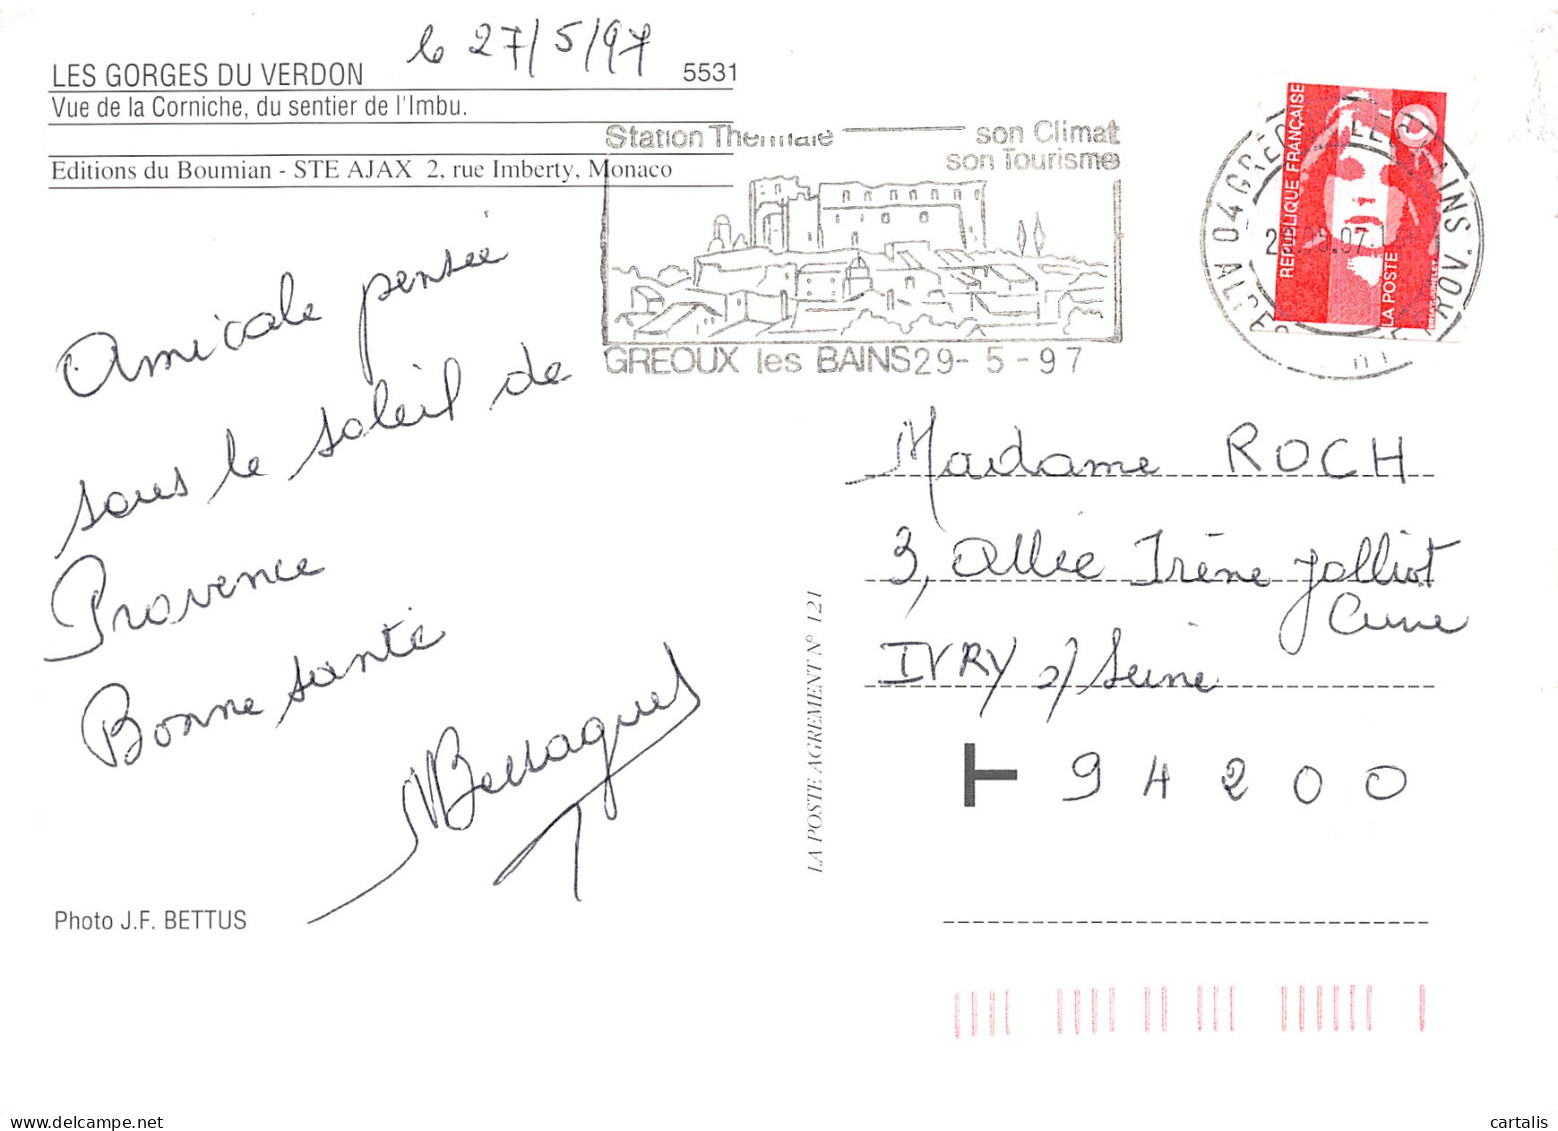 le 27/5/97
LES GORGES DU VERDON 5531
Vue de la Corniche, du sentier de l'Imbu.
Editions du Boumian - STE AJAX 2, rue Imberty, Monaco
Station Thermale son Climat
son Tourisme
GREOUX les BAINS 29-5-97
REPUBLIQUE FRANÇAISE
LA POSTE
Amicale pensée
sous le soleil de
Provence
Bonne santé
Bessagues
Photo J.F. BETTUS
LA POSTE AGREMENT N° 121
Madame ROCH
3, Allée Irène Jolliot
Curie
IVRY s/ Seine
94200
cartalis